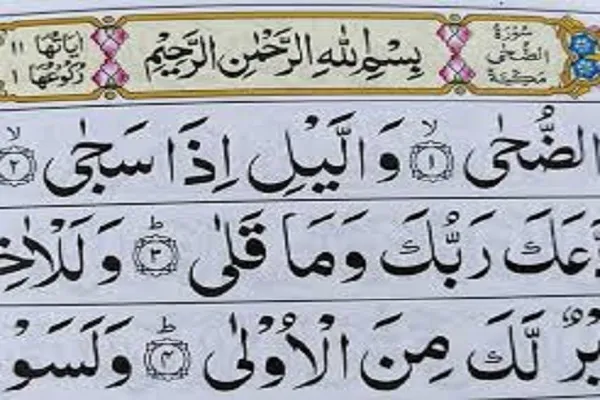 سُوْرَةُ الضُّحٰى مَكِّيَّةٌ بِسْمِ اللهِ الرَّحْمٰنِ الرَّحِيْمِ اٰيَاتُهَا ١١ رُكُوْعُهَا ١
الضُّحٰى ۙ﴿١﴾ وَالَّيْلِ اِذَا سَجٰى ۙ﴿٢﴾
دَّعَكَ رَبُّكَ وَمَا قَلٰى ؕ﴿٣﴾ وَلَلْاٰخِ
يْرٌ لَّكَ مِنَ الْاُوْلٰى ؕ﴿٤﴾ وَلَسَوْ